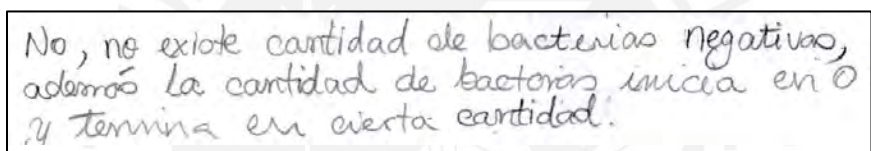 No, no existe cantidad de bacterias negativas,
además la cantidad de bacterias inicia en 0
y termina en cierta cantidad.